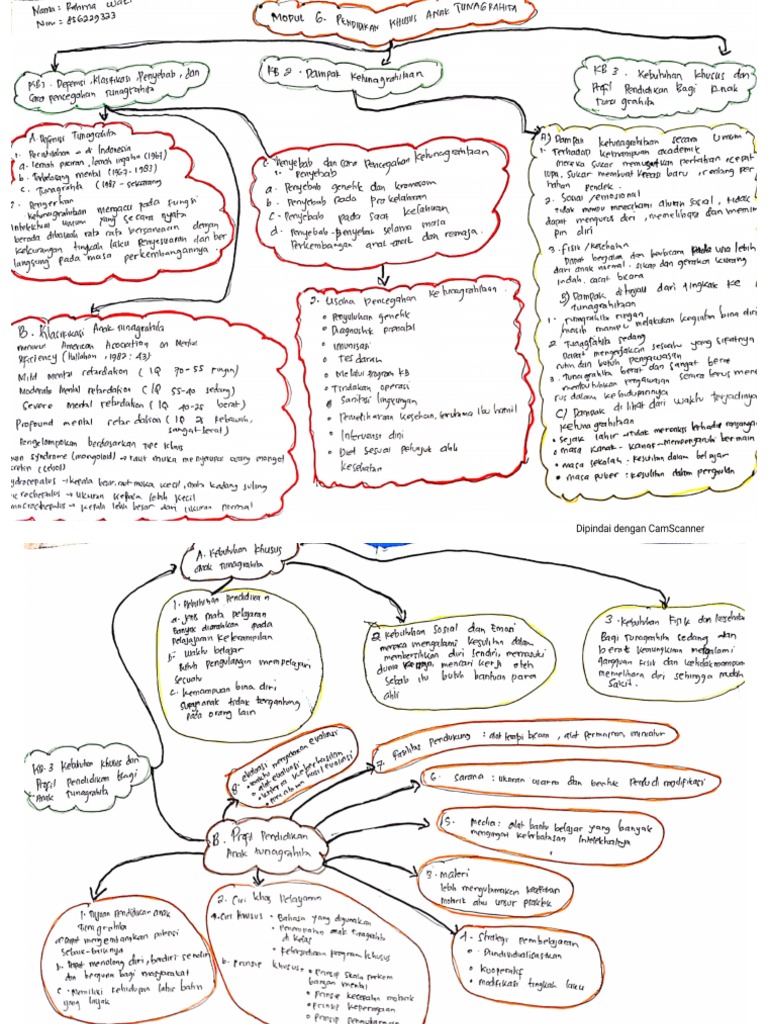 Nama : Rahma Wati
Nim : 856229323
MODUL 6. PENDIDIKAN KHUSUS ANAK TUNAGRAHITA
KB 1. Definisi, Klasifikasi, Penyebab, dan
Cara pencegahan Tunagrahita
KB 2. Dampak Ketunagrahitaan
KB 3. Kebutuhan Khusus dan
Profil Pendidikan Bagi Anak
Tunagrahita
A. Definisi Tunagrahita
1. Peristilahan di Indonesia
a. Lemah pikiran, lemah ingatan (1967)
b. Terbelakang mental (1967-1983)
c. Tunagrahita (1983 - sekarang)
2. Pengertian
Ketunagrahitaan mengacu pada fungsi
intelektual umum yang secara nyata
berada dibawah rata rata bersamaan dengan
kekurangan tingkah laku Penyesuaian dan ber
langsung pada masa perkembangannya
C. Penyebab dan Cara Pencegahan Ketunagrahitaan
1. Penyebab
a. Penyebab genetik dan kromosom
b. Penyebab pada pra kelahiran
c. Penyebab pada saat kelahiran
d. Penyebab-Penyebab selama masa
Perkembangan anak-anak dan remaja.
A) Dampak ketunagrahitaan secara Umum
1. Terhadap keterampuan academik
mereka sukar memusatkan perhatian, cepat
lupa, sukar membuat kreasi baru, rentang per
hatian pendek.
2. Sosial/emosional
Tidak mampu memahami aturan sosial, tidak
dapat mengurus diri, memelihara dan memim
pin diri
3. fisik / kesehatan
Dapat berjalan dan berbicara pada usia lebih
dari anak normal. sikap dan gerakan kurang
indah, cacat bicara
B) Dampak ditinjau dari tingkat ke
tunagrahitaan
1. Tunagrahita ringan
masih mampu melakukan kegiatan bina diri
2. Tunagrahita sedang
Dapat mengerjakan sesuatu yang sifatnya
rutin dan butuh pengawasan
3. Tunagrahita berat dan sangat berat
membutuhkan pengawasan secara terus mene
rus dalam kehidupannya
C) Dampak dilihat dari waktu terjadinya
ketunagrahitaan
• sejak lahir → tidak mereaksi terhadap rangsangan
• masa kanak-kanak - Mempengaruhi bermain
• masa sekolah - kesulitan dalam belajar
• masa puber : kesulitan dalam pergaulan
2. Usaha Pencegahan Ketunagrahitaan
• Penyuluhan genetik
• Diagnostik prenatal
• Imunisasi
• Tes darah
• Melalui program KB
• Tindakan operasi
• Sanitasi lingkungan
• Pemeliharaan kesehan, terutama ibu hamil
• Intervensi dini
• Diet sesuai petunjuk ahli
kesehatan
B. Klasifikasi Anak tunagrahita
menurut American Association on Mental
Deficiency (Hallahan, 1982 : 43)
Mild mental retardation (IQ 70-55 ringan)
Moderate Mental retardation (IQ 55-40 sedang)
Severe mental retardation (IQ 40-25 berat)
Profound mental retardation (IQ 25 kebawah,
sangat berat)
Pengelompokan berdasarkan Tipe klinis
syndrome (mongoloid) → raut muka menyerupai orang mongol
(cebol)
→ kepala besar, raut muka kecil, mata kadang juling
→ ukuran kepala lebih kecil
macrocephalus → kepala lebih besar dari ukuran normal
Dipindai dengan CamScanner
A. Kebutuhan Khusus
Anak Tunagrahita
1. Kebutuhan Pendidikan
a. Jenis mata pelajaran
Banyak diarahkan pada
Pelajaran Keterampilan
b. Waktu belajar
Butuh Pengulangan mempelajari
sesuatu
c. Kemampuan bina diri
supaya anak tidak tergantung
pada orang lain
2. Kebutuhan Sosial dan Emosi
mereka mengalami kesulitan dalam
membersihkan diri sendiri, memasuki
dunia kerja, mencari kerja oleh
sebab itu butuh bantuan para
ahli
3. Kebutuhan Fisik dan Kesehatan
Bagi Tunagrahita sedang dan
berat kemungkinan mengalami
gangguan fisik dan ketidakmampuan
memelihara diri sehingga mudah
Sakit.
KB.3 Kebutuhan khusus dan
Profil Pendidikan Bagi
Anak Tunagrahita
8. evaluasi
• waktu mengadakan evaluasi
• alat evaluasi
• kriteria keberhasilan
• pencatatan hasil evaluasi
7. Fasilitas Pendukung : alat terapi bicara, alat permainan,
6. Sarana : ukuran warna dan bentuk perlu di modifikasi
5. Media : alat bantu belajar yang banyak
mengingat keterbatasan intelektualnya
B. Profil Pendidikan
Anak tunagrahita
3. Materi
lebih mengutamakan kegiatan
motorik atau unsur praktek
4. Strategi pembelajaran
• Diindividualisasikan
• Kooperatif
• modifikasi tingkah laku
1. Tujuan pendidikan anak
Tunagrahita
a. Dapat mengembangkan potensi
sebaik-baiknya
b. Dapat menolong diri, berdiri sendiri
dan berguna bagi masyarakat
c. Memiliki kehidupan lahir batin
yang layak
2. Ciri khas Pelayanan
a. Ciri khusus • Bahasa yang digunakan
• Penempatan anak tunagrahita
di kelas
• Ketersediaan program khusus
b. Prinsip khusus • Prinsip skala perkem
bangan mental
• Prinsip kecepatan motorik
• Prinsip keperagaan
• Prinsip pengulangan